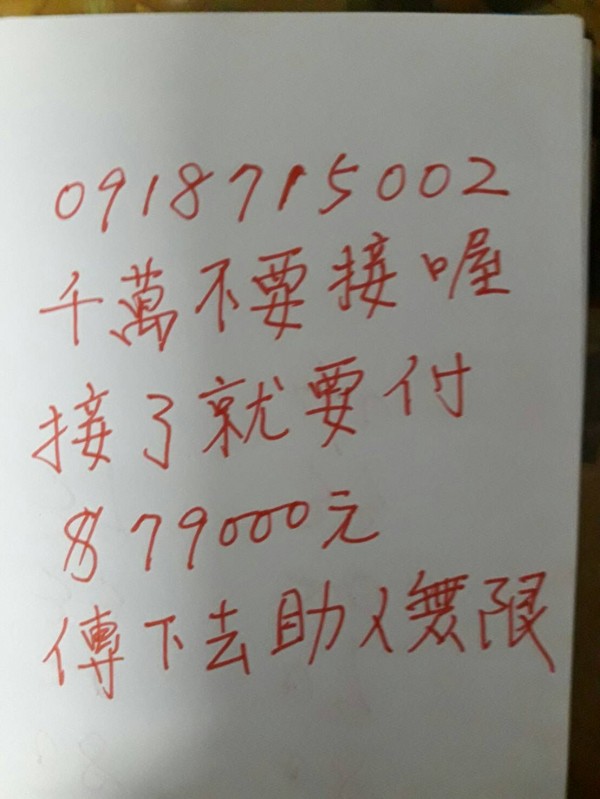 0918715002
千萬不要接喔
接了就要付
$79000元
傳下去助人無限